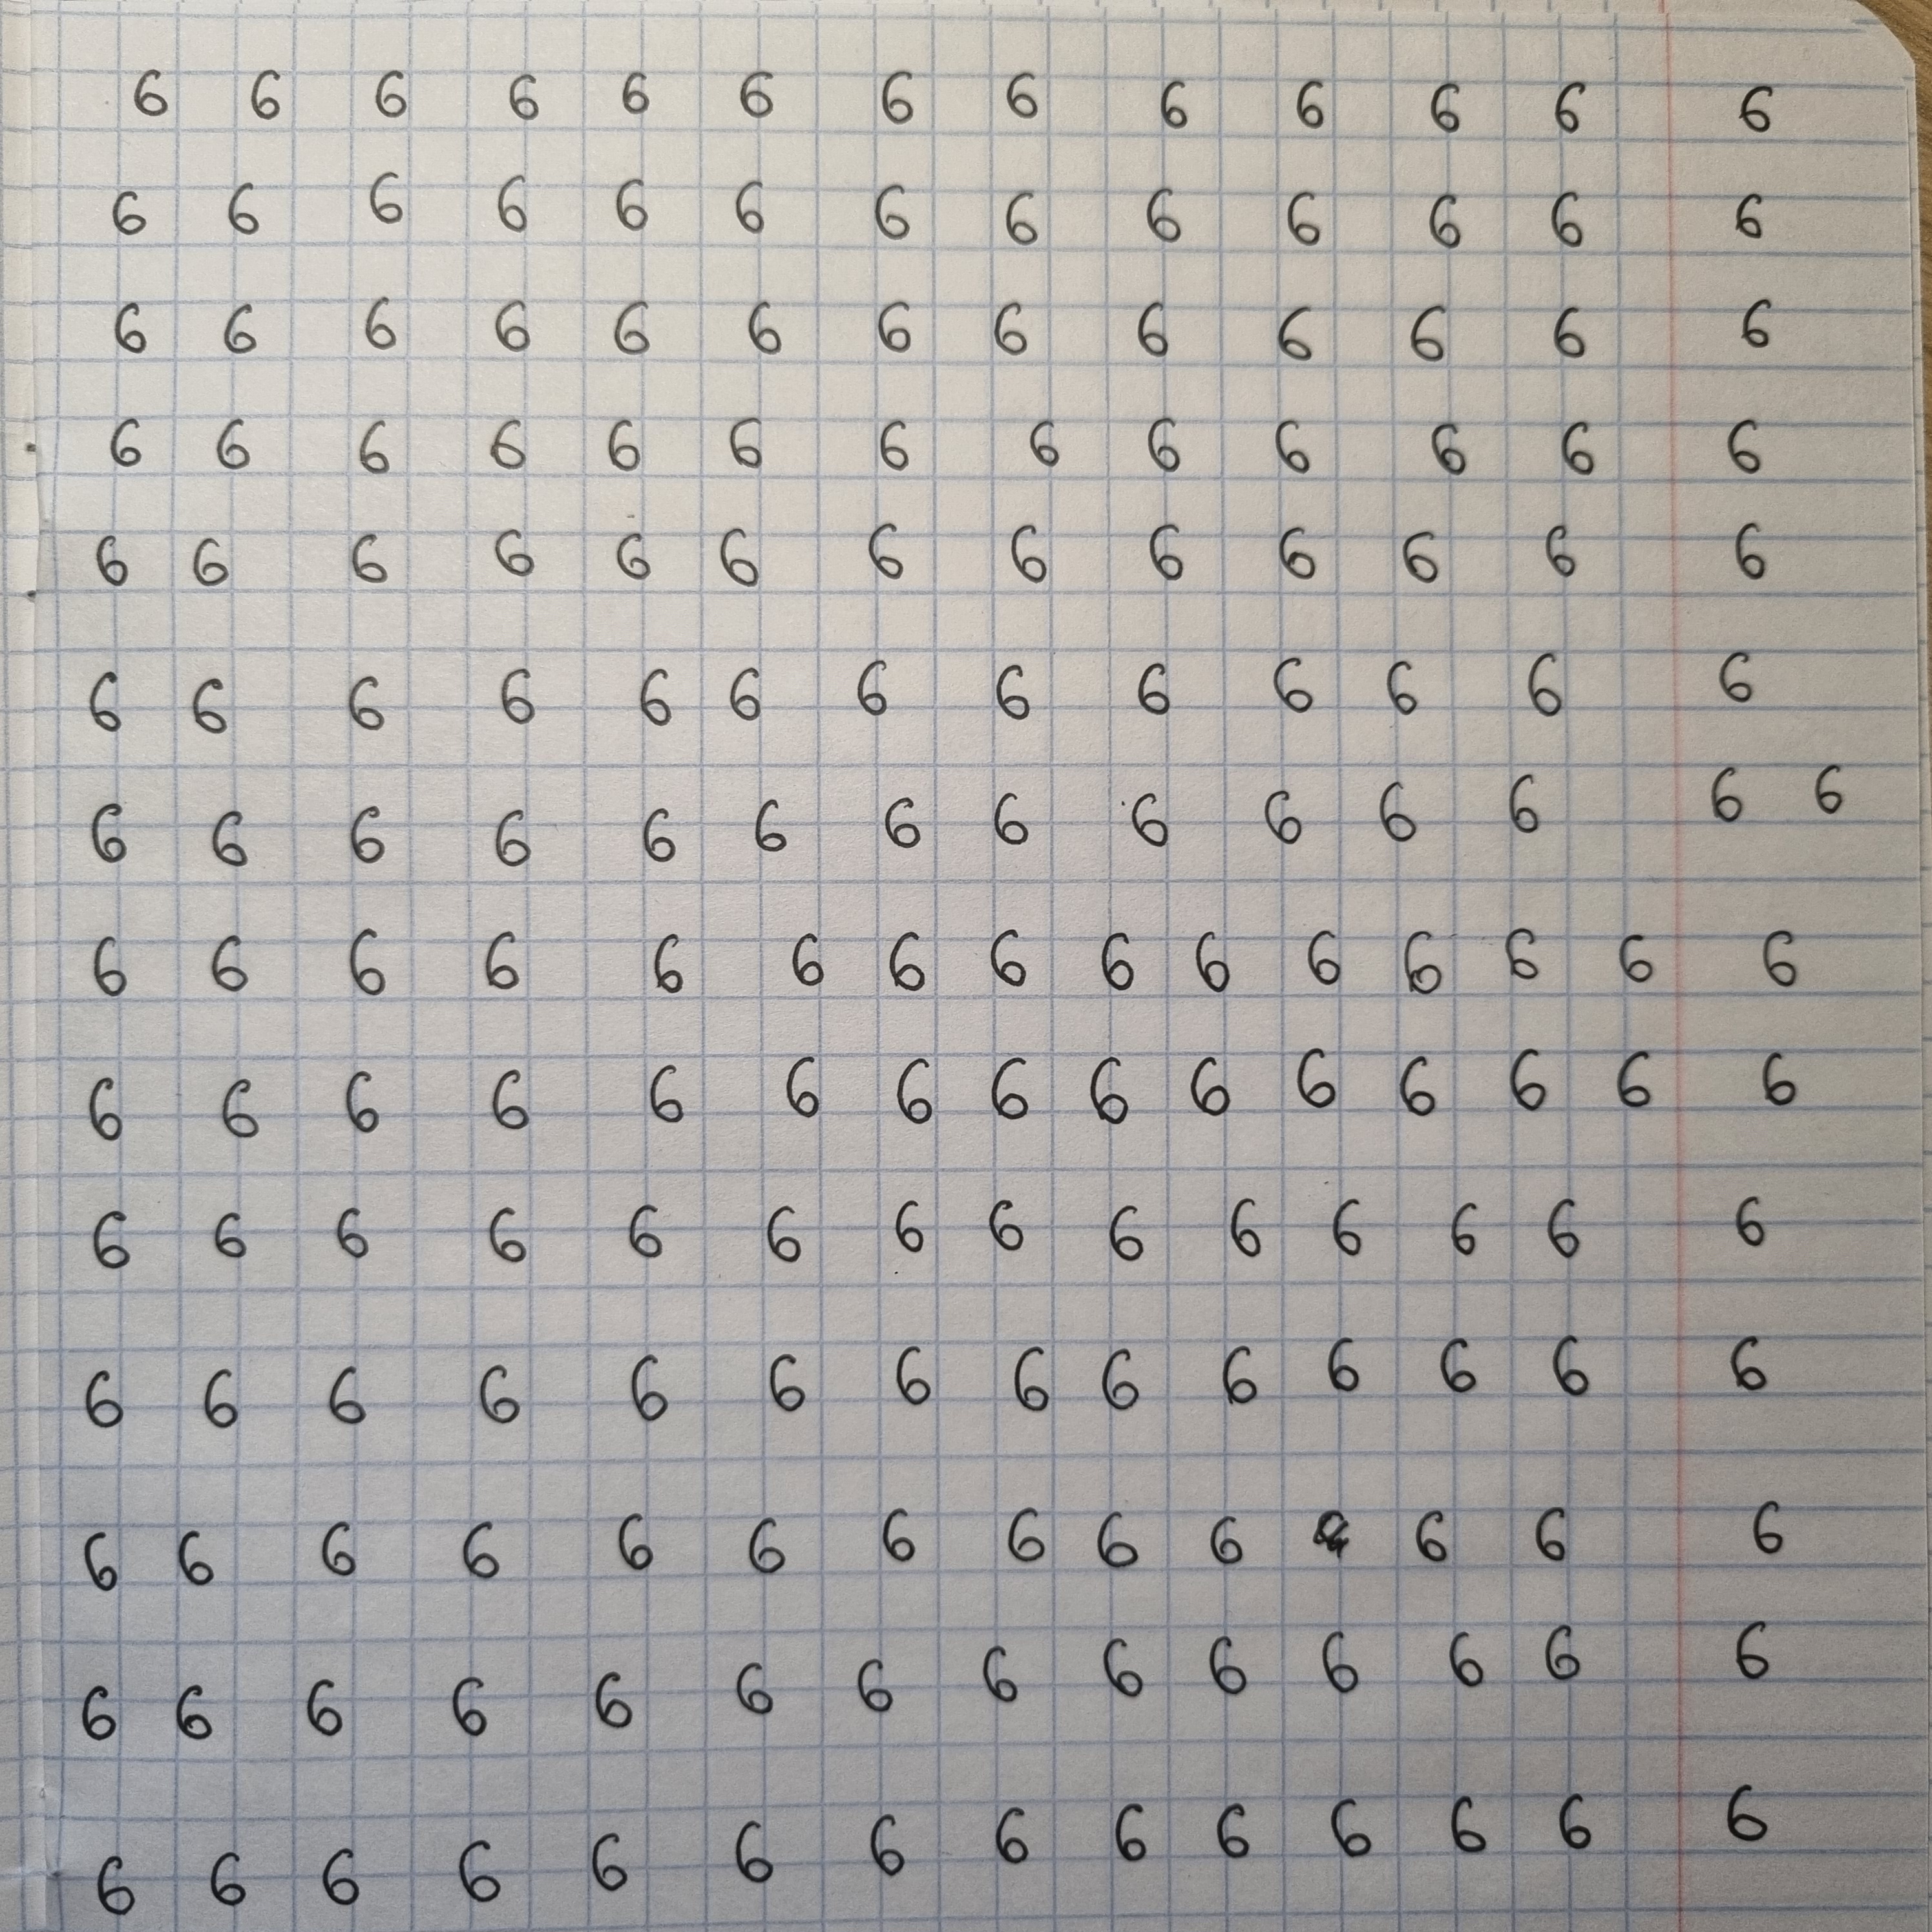 6 6 6 6 6 6 6 6 6 6 6 6 6
6 6 6 6 6 6 6 6 6 6 6 6 6
6 6 6 6 6 6 6 6 6 6 6 6 6
6 6 6 6 6 6 6 6 6 6 6 6 6
6 6 6 6 6 6 6 6 6 6 6 6 6
6 6 6 6 6 6 6 6 6 6 6 6 6
6 6 6 6 6 6 6 6 6 6 6 6 6 6
6 6 6 6 6 6 6 6 6 6 6 6 6 6 6
6 6 6 6 6 6 6 6 6 6 6 6 6 6 6
6 6 6 6 6 6 6 6 6 6 6 6 6 6
6 6 6 6 6 6 6 6 6 6 6 6 6 6
6 6 6 6 6 6 6 6 6 6 6 6 6
6 6 6 6 6 6 6 6 6 6 6 6 6 6
6 6 6 6 6 6 6 6 6 6 6 6 6 6